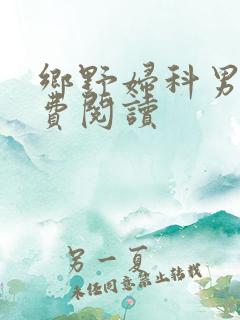 鄉野婦科男
費閱讀
另一夏
未经同意禁止转载